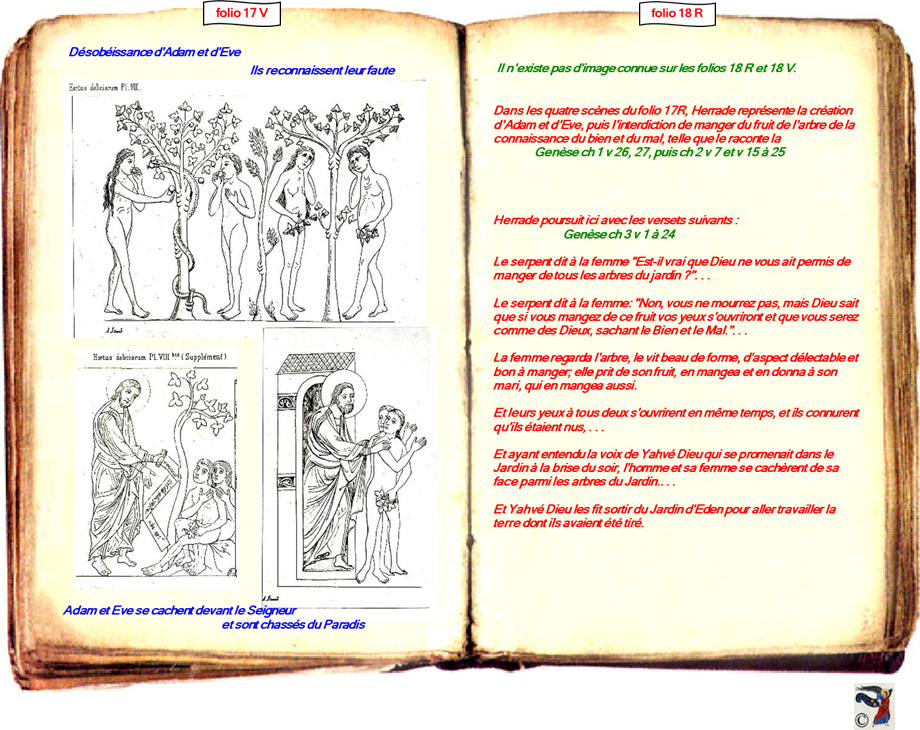 folio 17 V
Désobéissance d'Adam et d'Eve
Ils reconnaissent leur faute
Hortus deliciarum Pl. VIII.
Hortus deliciarum Pl. VIII bis (Supplément)
Adam et Eve se cachent devant le Seigneur
et sont chassés du Paradis
folio 18 R
Il n'existe pas d'image connue sur les folios 18 R et 18 V.
Dans les quatre scènes du folio 17R, Herrade représente la création
d'Adam et d'Eve, puis l'interdiction de manger du fruit de l'arbre de la
connaissance du bien et du mal, telle que le raconte la
Genèse ch 1 v 26, 27, puis ch 2 v 7 et v 15 à 25
Herrade poursuit ici avec les versets suivants :
Genèse ch 3 v 1 à 24
Le serpent dit à la femme "Est-il vrai que Dieu ne vous ait permis de
manger de tous les arbres du jardin ?". . .
Le serpent dit à la femme: "Non, vous ne mourrez pas, mais Dieu sait
que si vous mangez de ce fruit vos yeux s'ouvriront et que vous serez
comme des Dieux, sachant le Bien et le Mal.". . .
La femme regarda l'arbre, le vit beau de forme, d'aspect délectable et
bon à manger; elle prit de son fruit, en mangea et en donna à son
mari, qui en mangea aussi.
Et leurs yeux à tous deux s'ouvrirent en même temps, et ils connurent
qu'ils étaient nus, . . .
Et ayant entendu la voix de Yahvé Dieu qui se promenait dans le
Jardin à la brise du soir, l'homme et sa femme se cachèrent de sa
face parmi les arbres du Jardin.. . .
Et Yahvé Dieu les fit sortir du Jardin d'Eden pour aller travailler la
terre dont ils avaient été tiré.
©